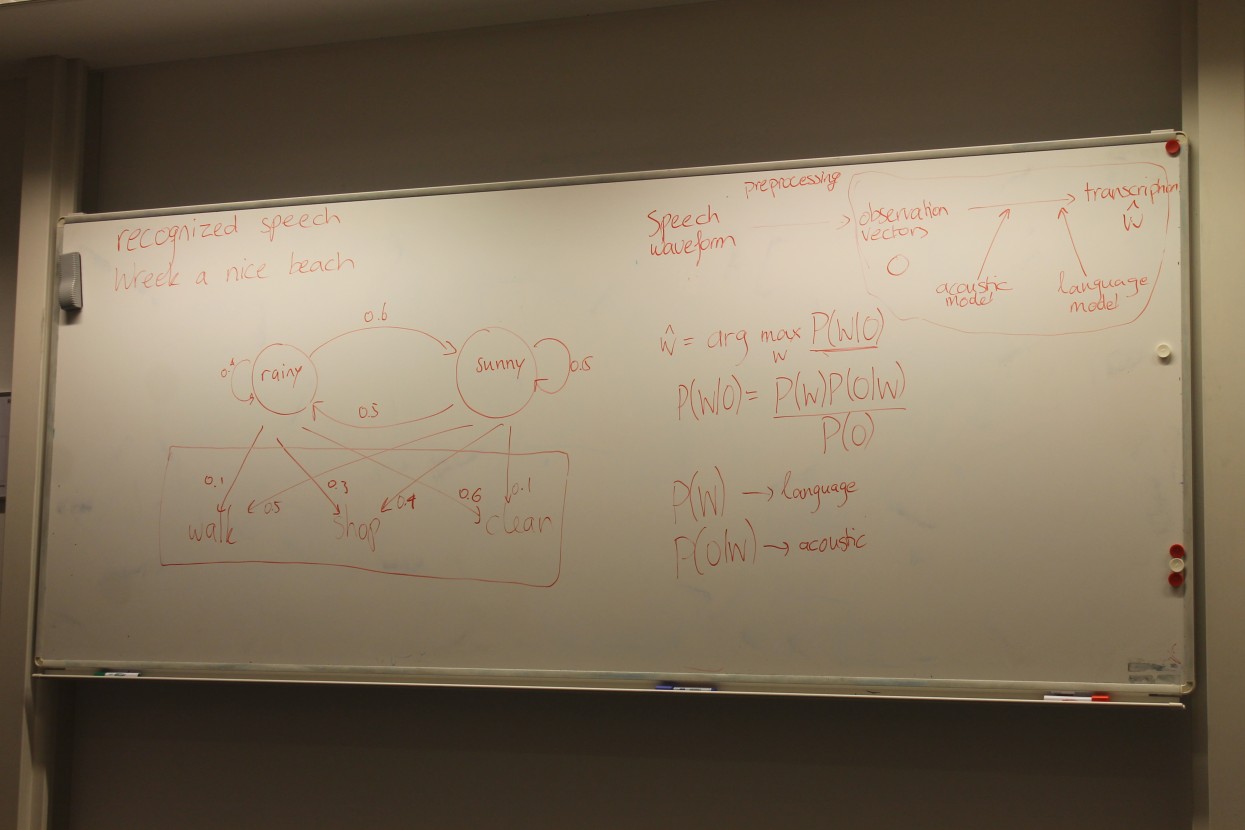 recognized speech
Wreek a nice beach
0.6
rainy
sunny
0.5
0.5
0.1
0.5
0.3
0.4
0.6
0.1
walk
shop
clean
preprocessing
Speech
waveform
observation
vectors
O
transcription
ŵ
acoustic
model
language
model
ŵ = arg max P(W|O)
w
P(W|O) = P(W)P(O|W)
P(O)
P(W) → language
P(O|W) → acoustic